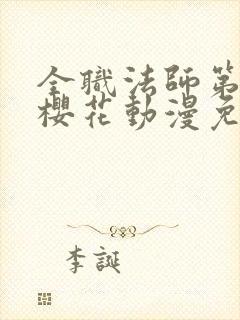 全職法師第
櫻花動漫免
李誕